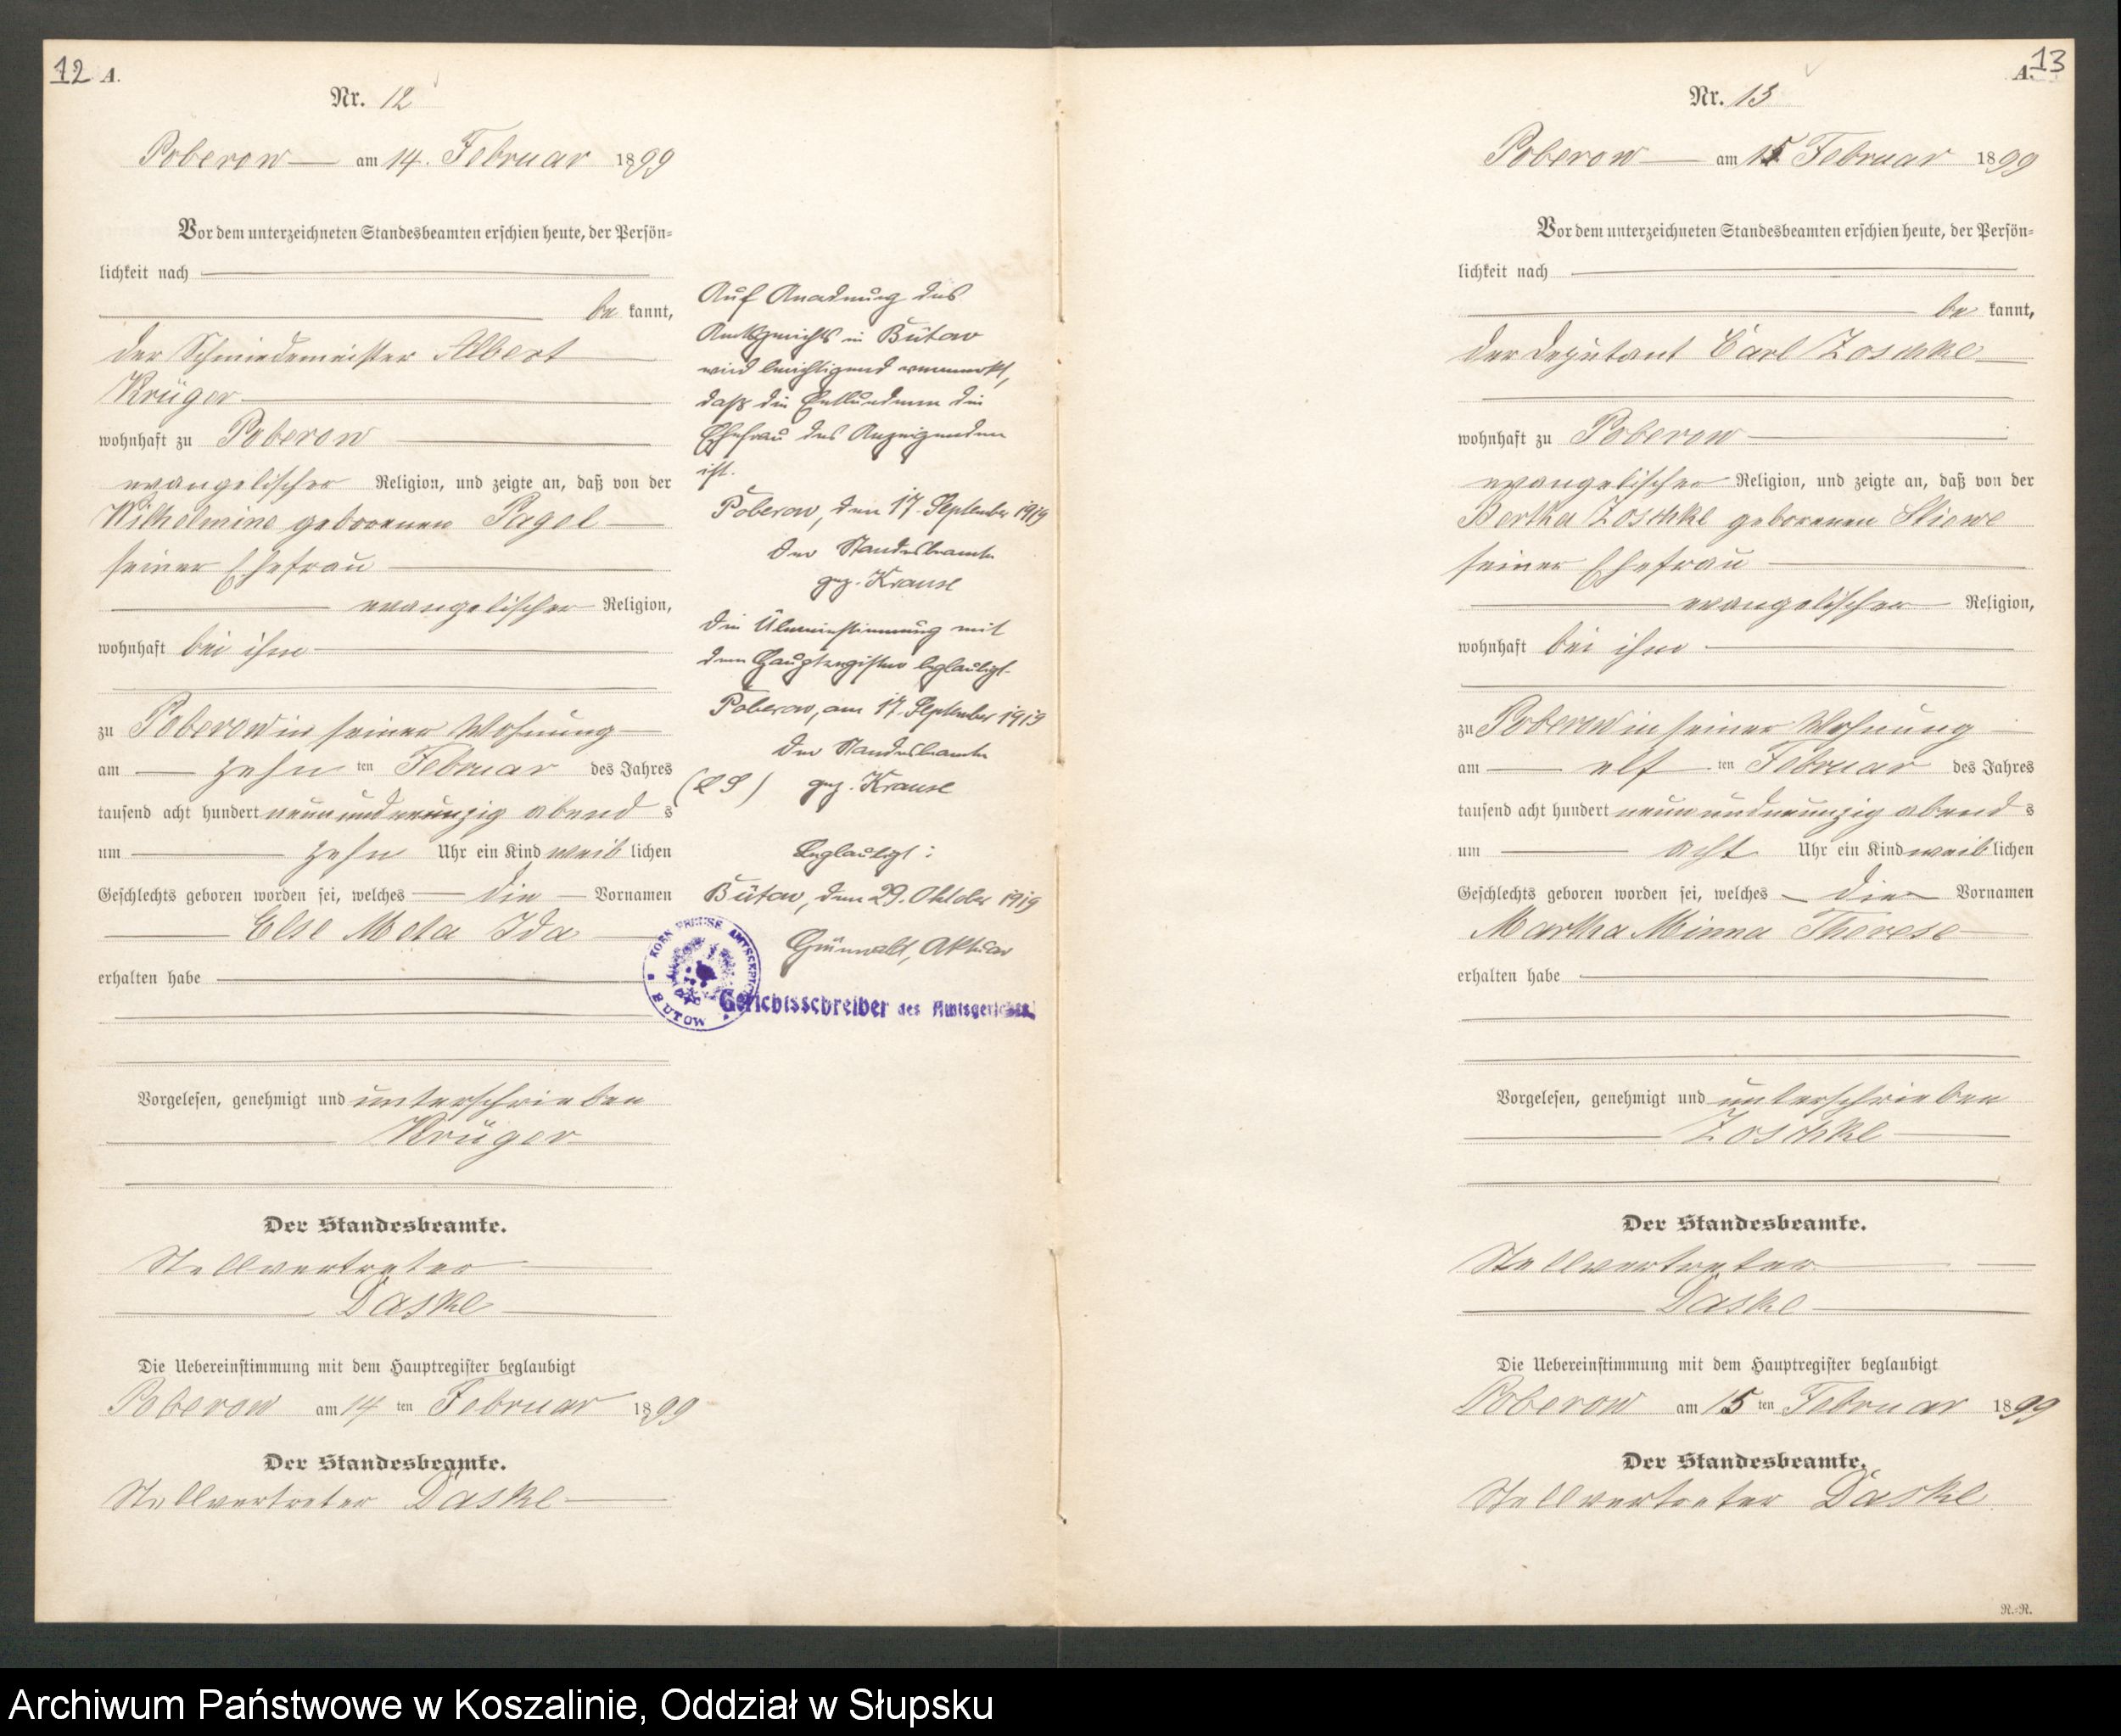 12 A.
Nr. 12
Poberow am 14. Februar 1899
Vor dem unterzeichneten Standesbeamten erschien heute, der Persön-
lichkeit nach
be kannt,
der Schmiedemeister Albert
Krüger
wohnhaft zu Poberow
evangelischer Religion, und zeigte an, daß von der
Wilhelmine geborenen Pagel
seiner Ehefrau
evangelischer Religion,
wohnhaft bei ihm
zu Poberow in seiner Wohnung
am zehn ten Februar des Jahres
tausend acht hundert neunundneunzig abend s
um zehn Uhr ein Kind weib lichen
Geschlechts geboren worden sei, welches die Vornamen
Else Meta Ida
erhalten habe
Vorgelesen, genehmigt und unterschrieben
Krüger
Der Standesbeamte.
Stellvertreter
Daske
Die Uebereinstimmung mit dem Hauptregister beglaubigt
Poberow am 14 ten Februar 1899
Der Standesbeamte.
Stellvertreter Daske
Auf Anordnung des
Amtsgerichts in Bütow
wird berichtigend vermerkt,
daß die Entbundene die
Ehefrau des Anzeigenden
ist.
Poberow, den 17. September 1919
Der Standesbeamte
gez. Krause
Die Übereinstimmung mit
dem Hauptregister beglaubigt.
Poberow, am 17. September 1919
Der Standesbeamte
(L S) gez. Krause
Beglaubigt:
Bütow, den 29. Oktober 1919
Grünwald, Aktuar
KOEN. PREUSS. AMTSGERICHT
BUTOW
Gerichtsschreiber des Amtsgerichts.
13
A.
Nr. 13
Poberow am 15 Februar 1899
Vor dem unterzeichneten Standesbeamten erschien heute, der Persön-
lichkeit nach
be kannt,
der Deputant Carl Zoschke
wohnhaft zu Poberow
evangelischer Religion, und zeigte an, daß von der
Bertha Zoschke geborenen Stiewe
seiner Ehefrau
evangelischer Religion,
wohnhaft bei ihm
zu Poberow in seiner Wohnung
am elf ten Februar des Jahres
tausend acht hundert neunundneunzig abend s
um acht Uhr ein Kind weib lichen
Geschlechts geboren worden sei, welches die Vornamen
Martha Minna Therese
erhalten habe
Vorgelesen, genehmigt und unterschrieben
Zoschke
Der Standesbeamte.
Stellvertreter
Daske
Die Uebereinstimmung mit dem Hauptregister beglaubigt
Poberow am 15 ten Februar 1899
Der Standesbeamte.
Stellvertreter Daske
R.-R.
Archiwum Państwowe w Koszalinie, Oddział w Słupsku